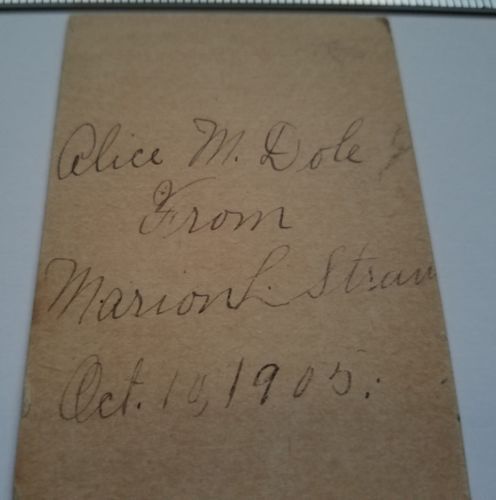 Alice M. Dole
From
Marion L. Straw
Oct. 10, 1905.